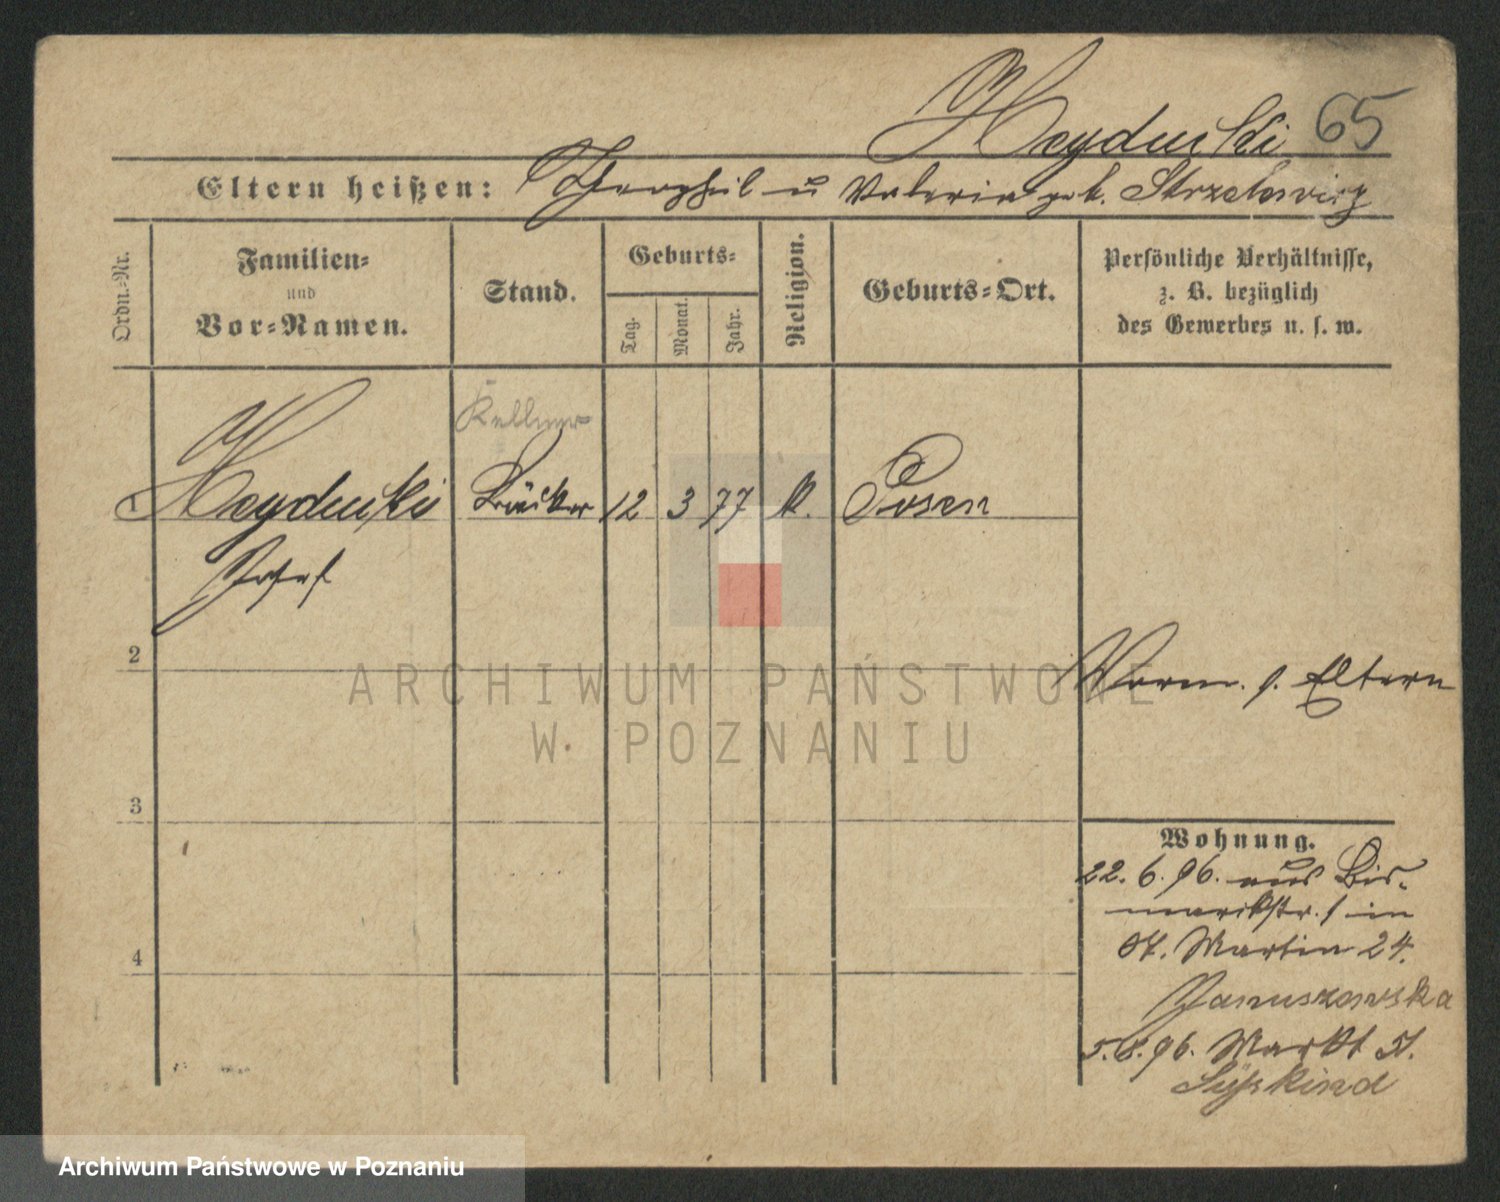 Heyducki 65
Eltern heißen: Theophil u Valeria geb. Strzelewicz
Ordn.-Nr.
Familien-
und
Vor-Namen.
Stand.
Geburts-
Tag.
Monat.
Jahr.
Religion.
Geburts-Ort.
Persönliche Verhältnisse,
z. B. bezüglich
des Gewerbes u. s. w.
Kellner
1 Heyducki Bäcker 12 3 77 k. Posen
Josef
2
Vorm. s. Eltern
3
Wohnung.
22. 6. 96. aus Bis-
markstr. 1 in
St. Martin 24.
Januszewska
5. 8. 96. Markt 51.
Süßkind
4
ARCHIWUM PAŃSTWOWE
W POZNANIU
Archiwum Państwowe w Poznaniu